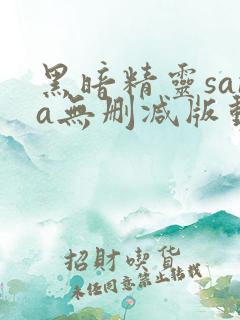 黑暗精靈sa
a無刪減版
招財喫貨
未任同意禁止转载